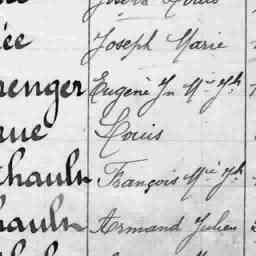 ée Joseph Marie
renger Eugène Jn Mie Jh
rue Louis
chaulu François Mie Jh
haulu Armand Julien